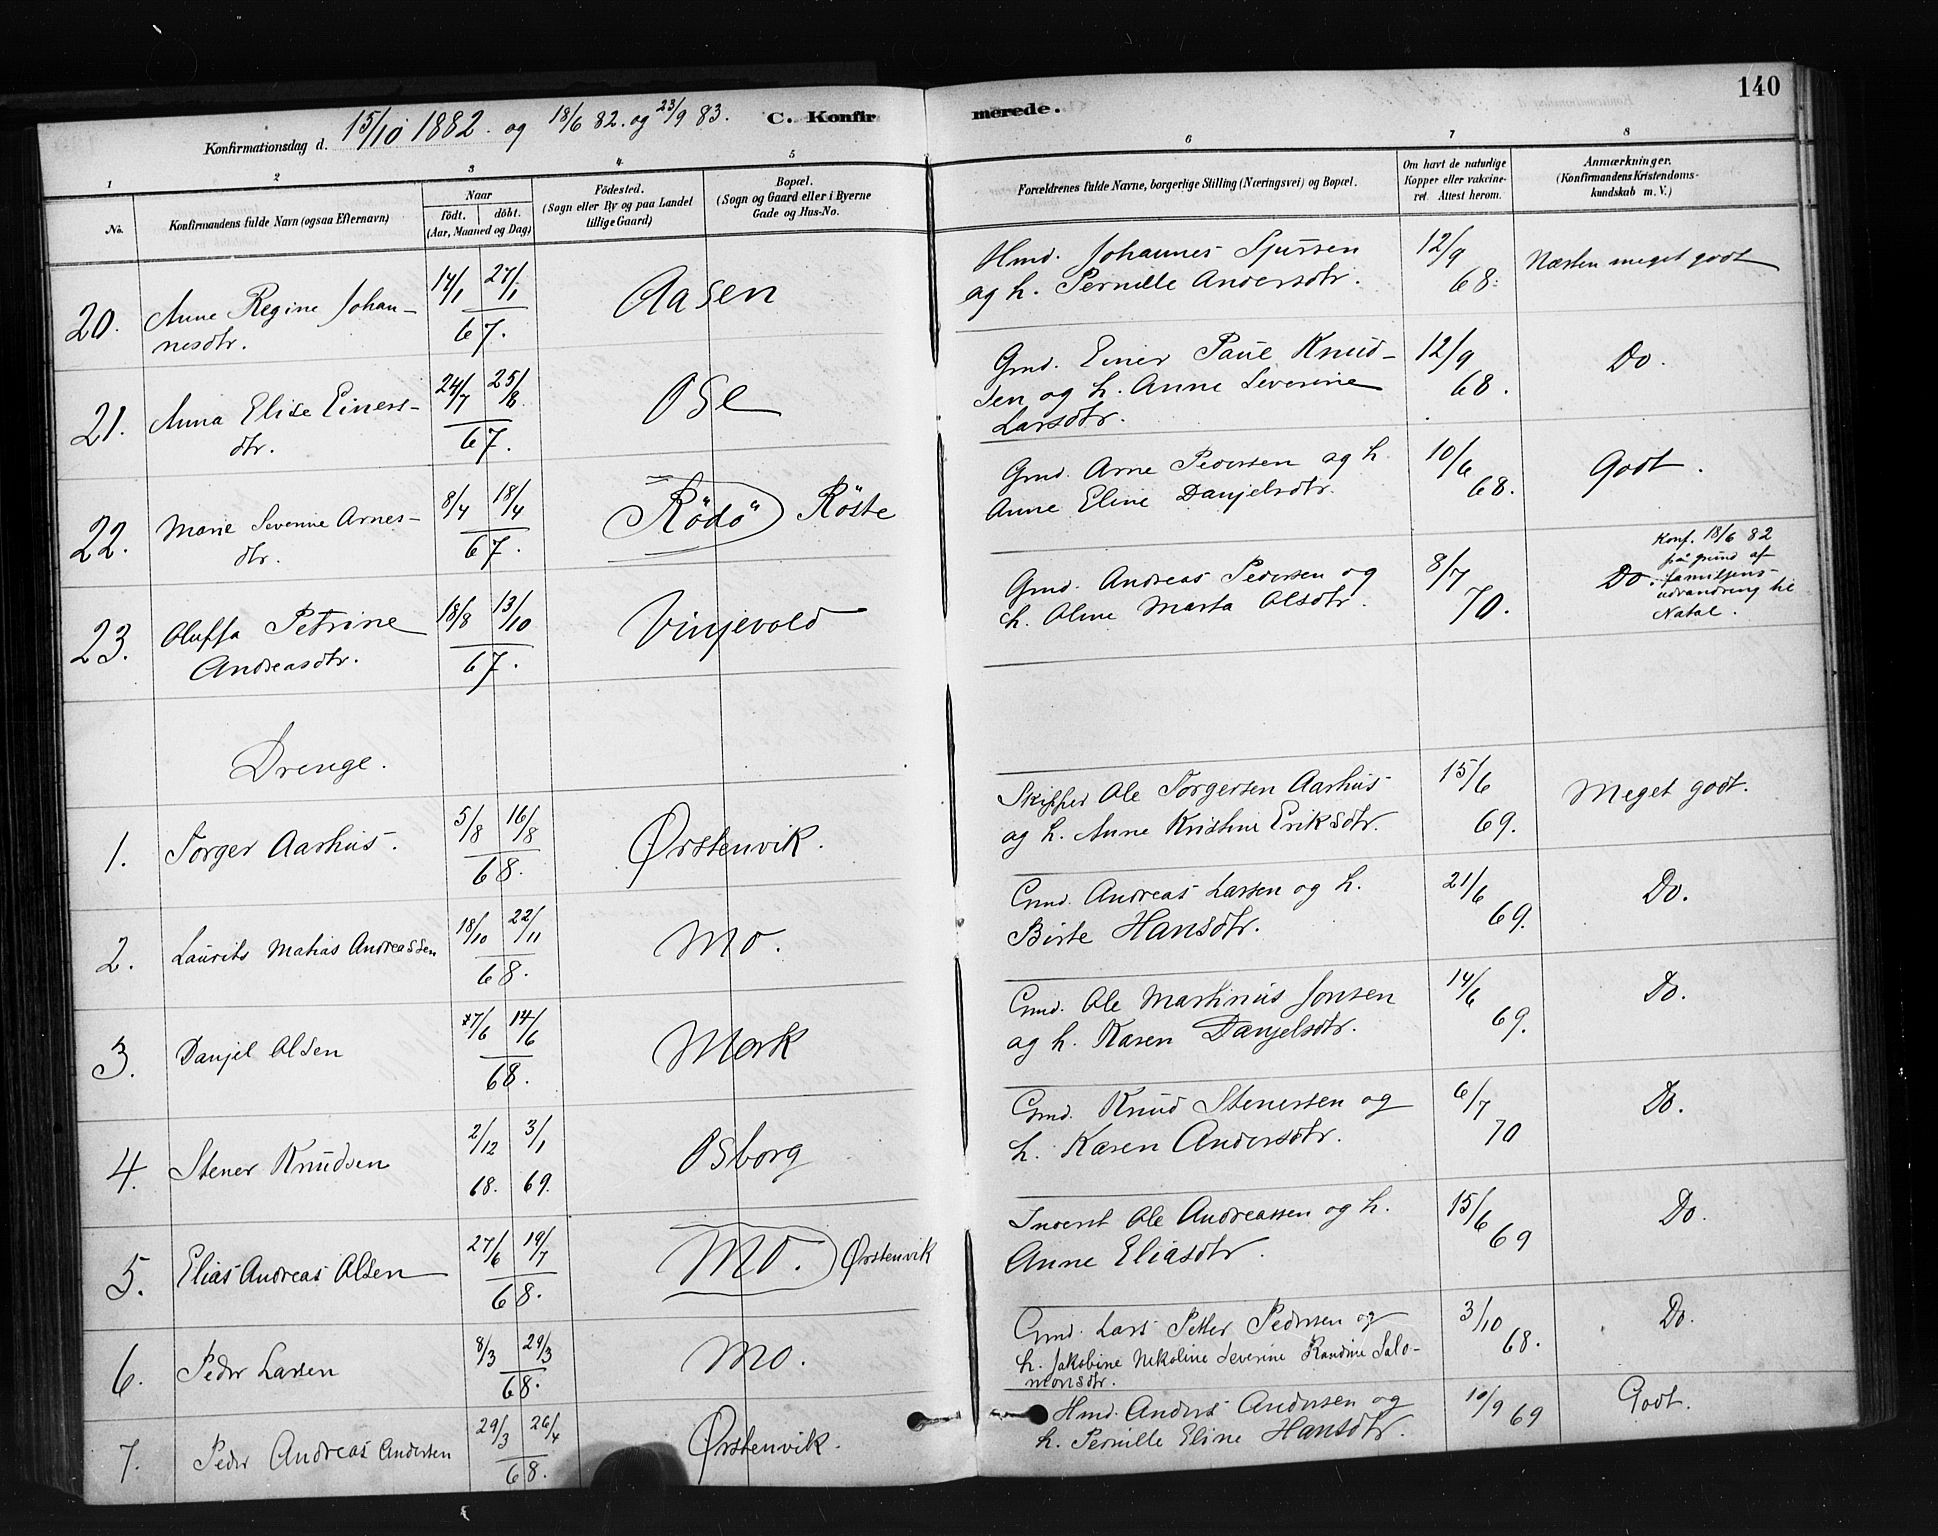 140
Konfirmationsdag d. 15/10 1882. og 18/6 82. og 23/9 83. C. Konfirmerede.
1 2 3 4 5 6 7 8
No. Konfirmandens fulde Navn (ogsaa Efternavn) Naar födt. döbt. (Aar, Maaned og Dag) Födested. (Sogn eller By og paa Landet tillige Gaard) Bopæl. (Sogn og Gaard eller i Byerne Gade og Hus-No. Forældrenes fulde Navne, borgerlige Stilling (Næringsvei) og Bopæl. Om havt de naturlige Kopper eller vakcineret. Attest herom. Anmærkninger. (Konfirmandens Kristendomskundskab m. V.)
20. Anne Regine Johan- 14/1 27/1 Aasen Hmd. Johannes Sjursen 12/9 Næsten meget godt
nesdtr. 67. og h. Pernille Andersdtr. 68.
21. Anna Elise Einers- 24/7 25/8 Ose Gmd. Einer Paul Knud- 12/9 Do.
dtr. 67. sen og h. Anne Severine 68.
Larsdtr.
22. Marie Severine Arnes- 8/4 18/4 Rödö Röste Gmd. Arne Pedersen og h. 10/6 Godt.
dtr. 67. Anne Eline Danjelsdtr. 68.
23. Oluffa Petrine 18/8 13/10 Vinjevold Gmd. Andreas Pedersen og 8/7 Do.
Andreasdtr. 67. h. Oline Marta Olsdtr. 70.
Konf. 18/6 82
på grund af
familjens
udvandring til
Natal.
Drenge.
1. Torger Aarhus. 5/8 16/8 Ørstenvik. Skipper Ole Torgersen Aarhus 15/6 Meget godt.
68. og h. Anne Kristine Eriksdtr. 69.
2. Laurits Matias Andreassen 18/10 22/11 Mo. Gmd. Andreas Larsen og h. 21/6 Do.
68. Birte Hansdtr. 69.
3. Danjel Olsen 7/6 14/6 Mork Gmd. Ole Martinus Jonsen 14/6 Do.
68. og h. Karen Danjelsdtr. 69.
4. Stener Knudsen 2/12 3/1 Osborg Gmd. Knud Stenersen og 6/7 Do.
68. 69. h. Karen Andersdtr. 70
5. Elias Andreas Olsen 27/6 19/7 Mo. Ørstenvik Inderst Ole Andreassen og h. 15/6 Do.
68. Anne Eliasdtr. 69
6. Peder Larsen 8/3 29/3 Mo. Gmd. Lars Petter Pedersen og 3/10 Do.
68. h. Jakobine Nikoline Severine Randine Salo- 68.
monsdtr.
7. Peder Andreas Andersen 29/3 26/4 Ørstenvik. Hmd. Anders Andersen og 10/9 69 Godt.
68. h. Pernille Eline Hansdtr.